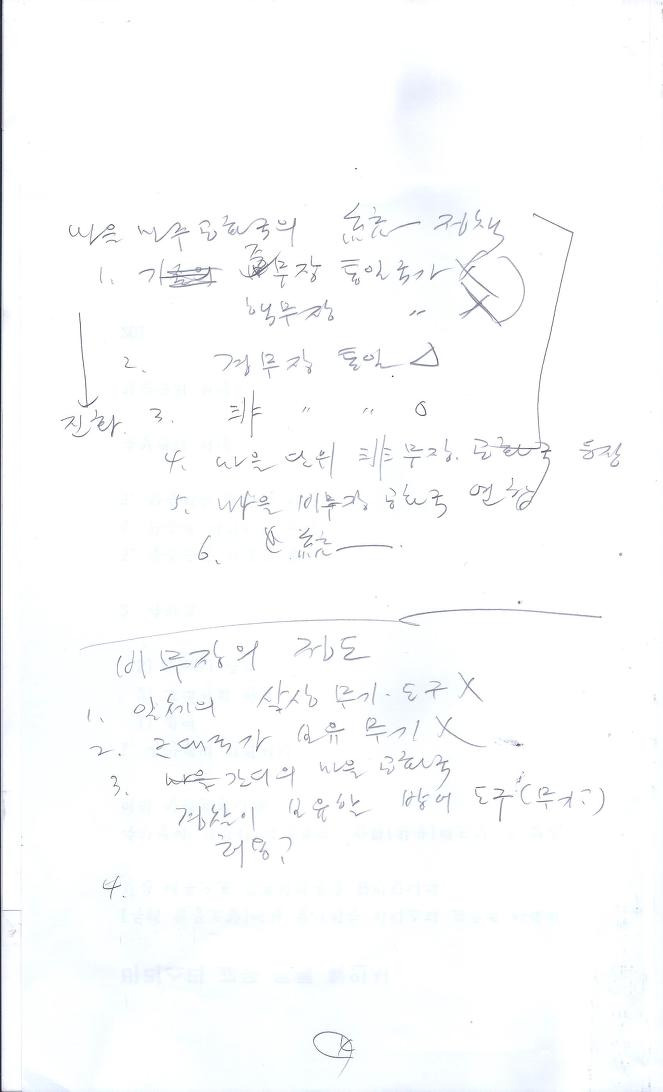 마을 민주 공화국의 統一 정책
1. 重무장 통일국가 X
핵무장 〃 X
2. 경무장 통일 △
진화 3. 非 〃 〃 O
4. 마을 단위 非무장 공화국 등장
5. 마을 비무장 공화국 연합
6. 統一
비무장의 정도
1. 일체의 살상 무기·도구 X
2. 근대국가 보유 무기 X
3. 간디의 마을 공화국
경찰이 보유할 방어 도구(무기)
허용?
4.